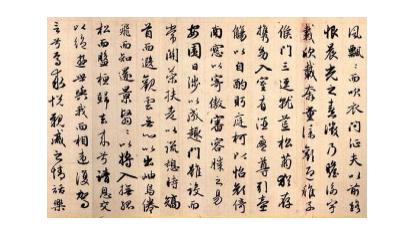 風飄飄而吹衣問征夫以前路
恨晨光之熹微乃瞻衡宇
載欣載奔僮僕歡迎稚子
候門三逕就荒松菊猶存
攜幼入室有酒盈尊引壺
觴以自酌眄庭柯以怡顏倚
南窓以寄傲審容膝之易
安園日涉以成趣門雖設而
常關策扶老以流憩時矯
首而遐觀雲無心以出岫鳥倦
飛而知還景翳翳以將入撫孤
松而盤桓歸去來兮請息交
以絕遊世與我而相遺復駕
言兮焉求悅親戚之情話樂